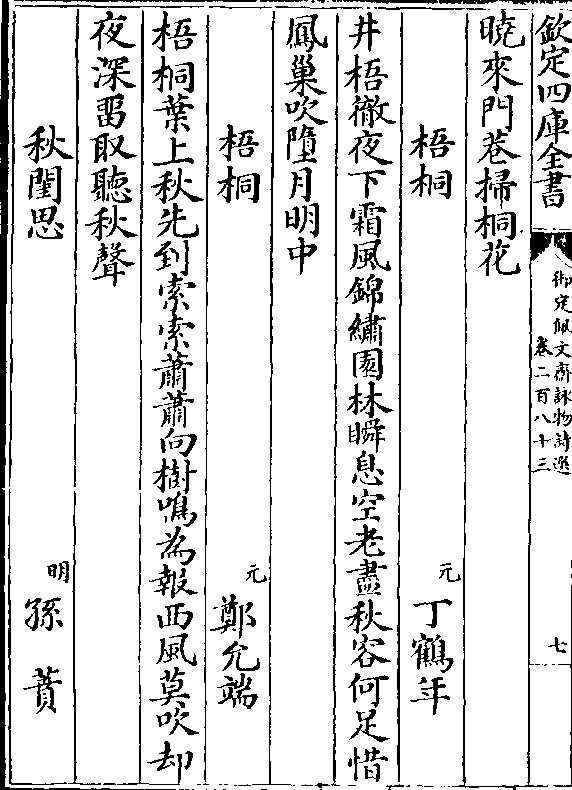 欽定四庫全書
御定佩文齋詠物詩選
卷二百八十三
七
曉來門巷掃桐花
梧桐
元
丁鶴年
井梧徹夜下霜風錦繡園林瞬息空老盡秋容何足惜
鳳巢吹墮月明中
梧桐
元
鄭允端
梧桐葉上秋先到索索蕭蕭向樹鳴為報西風莫吹却
夜深留取聽秋聲
秋閨思
明
孫蕡